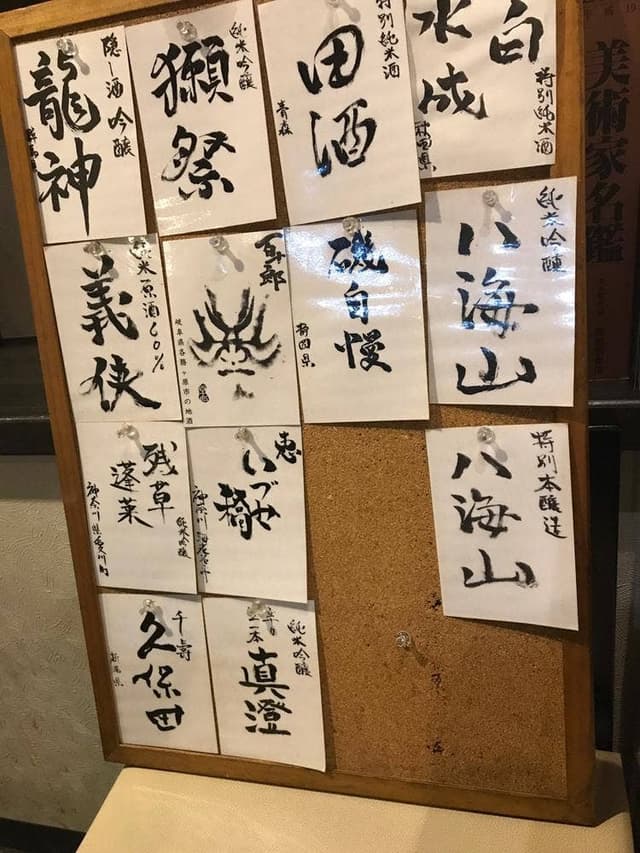 隠し酒 吟醸
龍神
純米吟醸
獺祭
特別純米酒
田酒
青森
白
水成
特別純米酒
秋田県
純米原酒60%
義侠
百十郎
岐阜県各務ヶ原市の地酒
磯自慢
静岡県
純米吟醸
八海山
残草
蓬莱
純米吟醸
神奈川県愛川町
恵
いづみ橋
特別本醸造
八海山
千寿
久保田
新潟県
純米吟醸
真澄
美術家名鑑